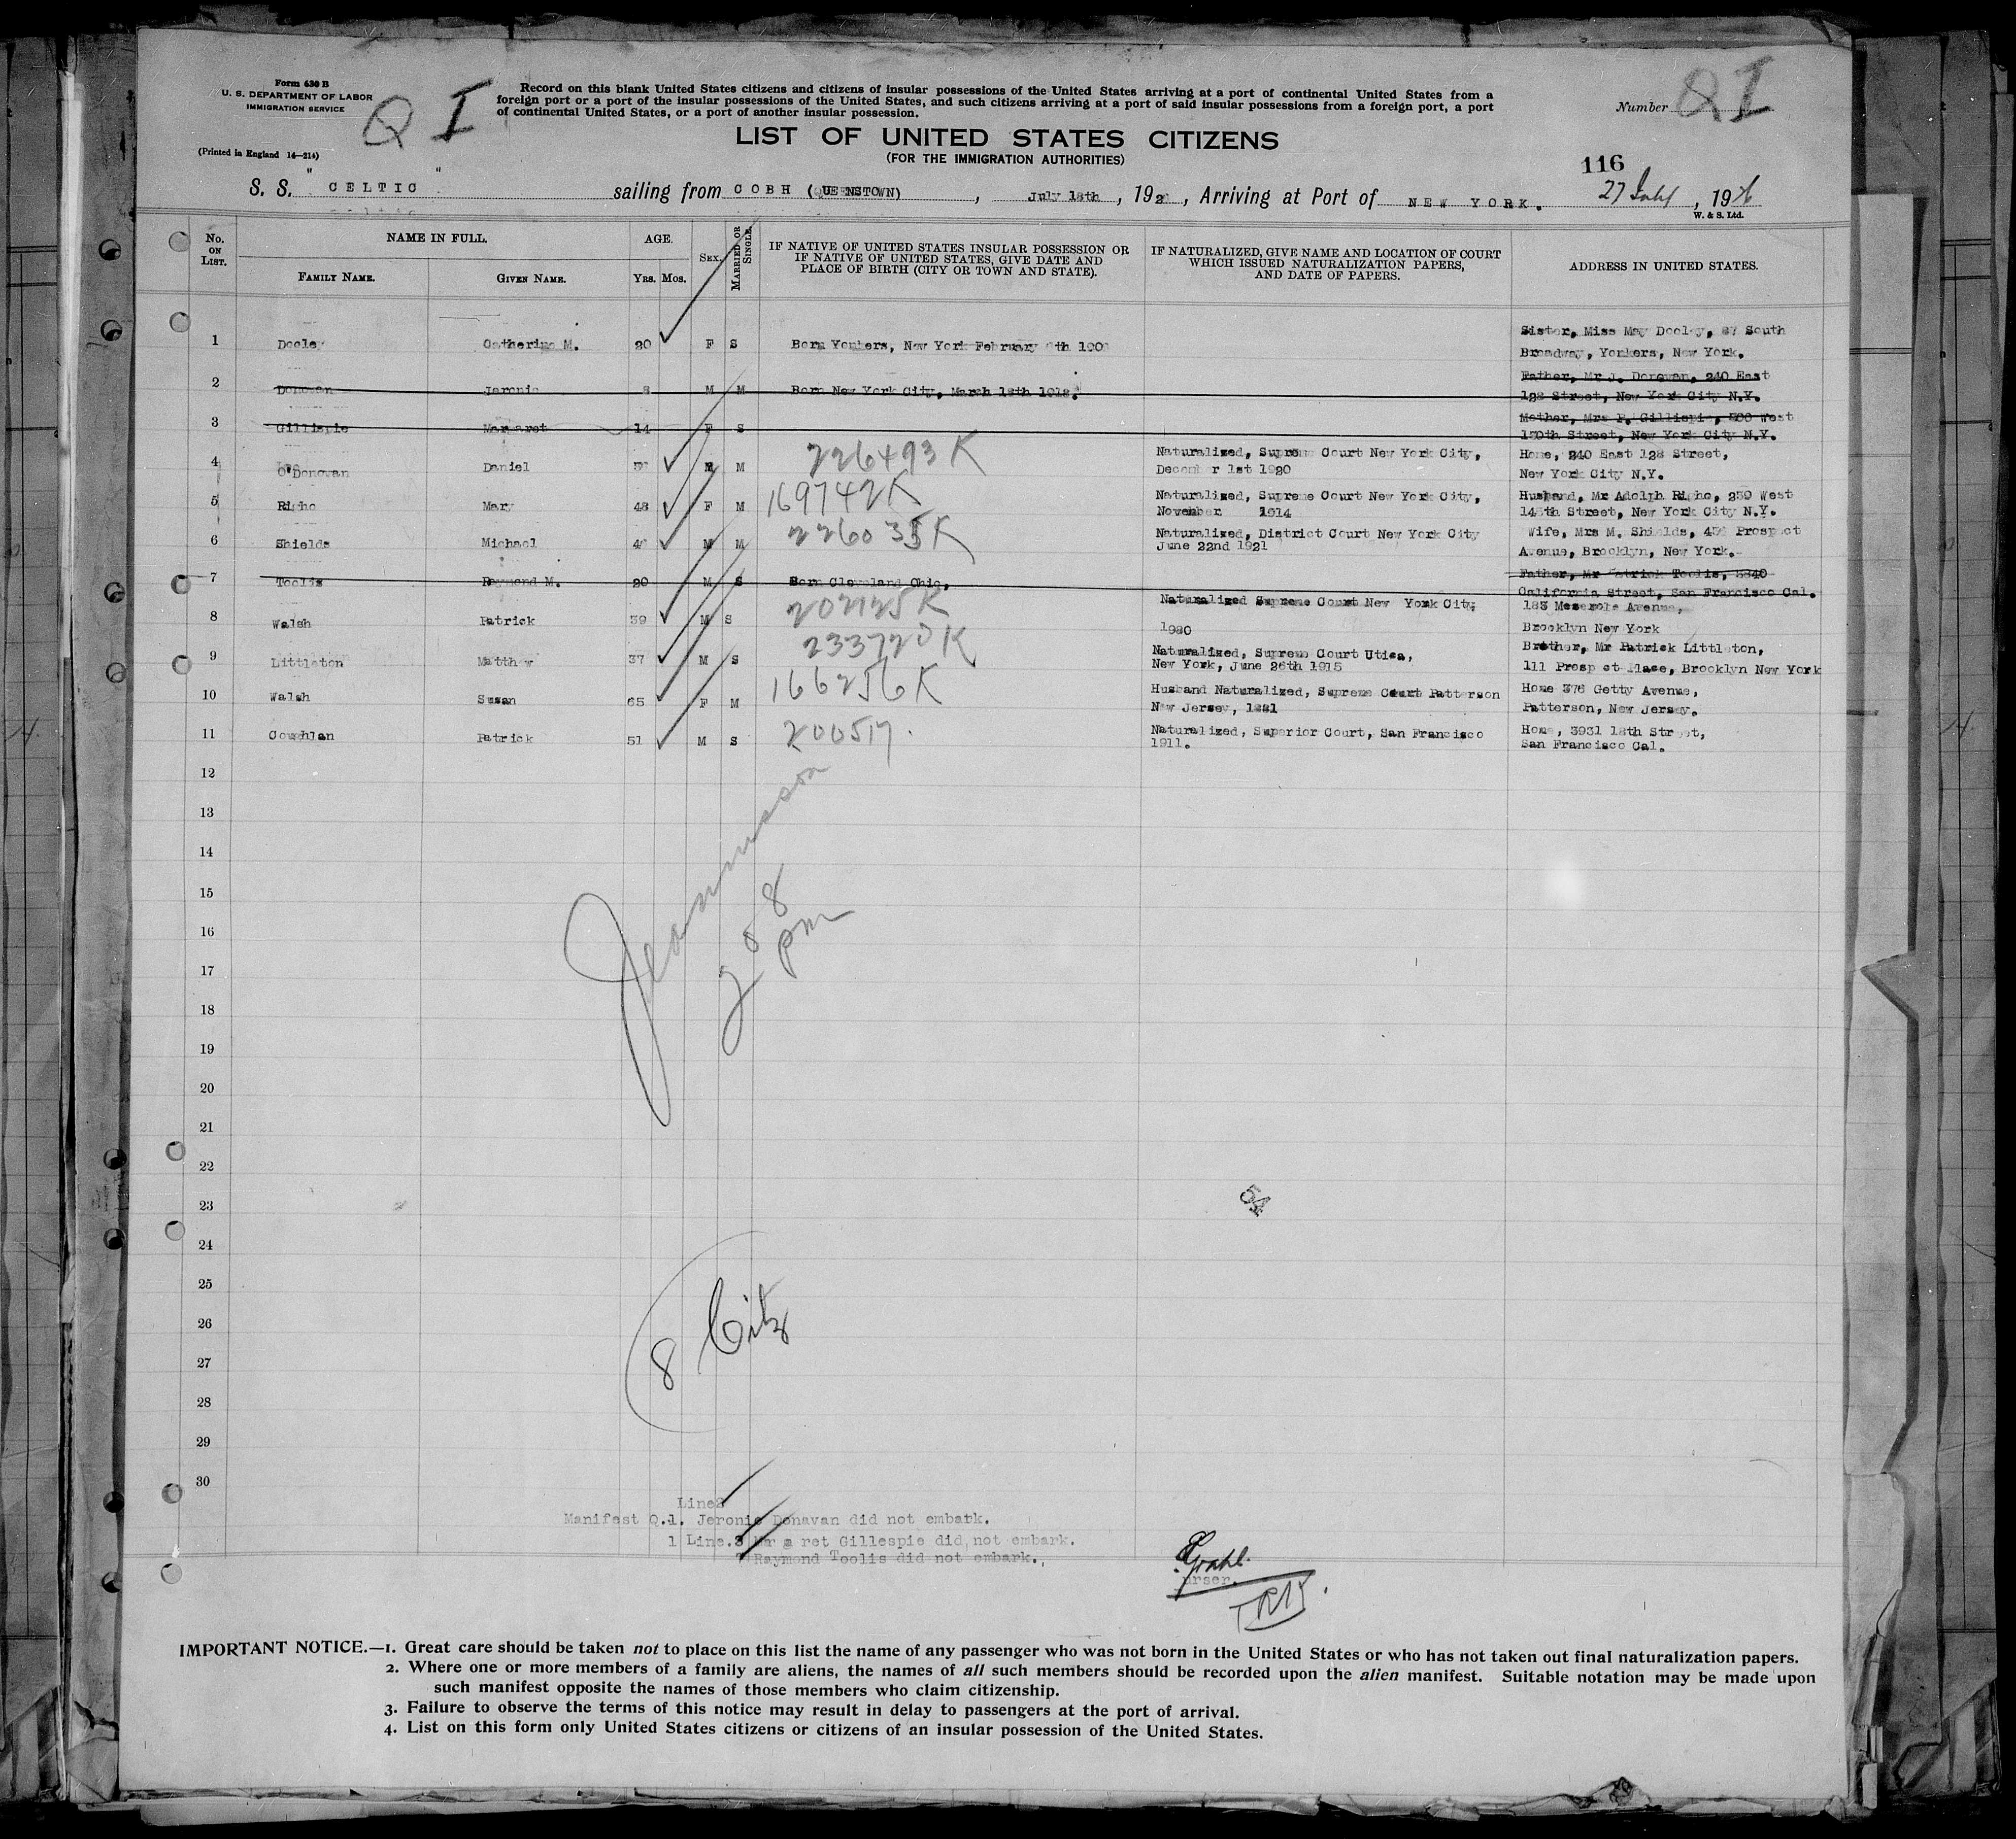 Form 630 B
U. S. DEPARTMENT OF LABOR
IMMIGRATION SERVICE
Q I
(Printed in England 14—214)
Record on this blank United States citizens and citizens of insular possessions of the United States arriving at a port of continental United States from a
foreign port or a port of the insular possessions of the United States, and such citizens arriving at a port of said insular possessions from a foreign port, a port
of continental United States, or a port of another insular possession.
Number QI
LIST OF UNITED STATES CITIZENS
(FOR THE IMMIGRATION AUTHORITIES)
116
S. S. "CELTIC" sailing from COBH (QUEENSTOWN), July 18th, 192 , Arriving at Port of NEW YORK. 27 July, 1926
W. & S. Ltd.
No. ON LIST.
NAME IN FULL.
FAMILY NAME.
GIVEN NAME.
AGE.
YRS. MOS.
SEX.
MARRIED OR SINGLE.
IF NATIVE OF UNITED STATES INSULAR POSSESSION OR
IF NATIVE OF UNITED STATES, GIVE DATE AND
PLACE OF BIRTH (CITY OR TOWN AND STATE).
IF NATURALIZED, GIVE NAME AND LOCATION OF COURT
WHICH ISSUED NATURALIZATION PAPERS,
AND DATE OF PAPERS.
ADDRESS IN UNITED STATES.
1 Dooley Catherine M. 20 F S Born Yonkers, New York February Sister, Miss May Dooley, South
Broadway, Yonkers, New York.
2 Donovan Jaronie M M Born New York City, March 18th 1918. Father, Mr J. Donovan, 240 East
128 Street, New York City N.Y.
3 Gillispie Margaret 14 F S Mother, Mrs P. Gillispie, West
150th Street, New York City N.Y.
4 O'Donovan Daniel M M 226493 K Naturalized, Supreme Court New York City, Home, 240 East 128 Street,
December 1st 1920 New York City N.Y.
5 Righo Mary 48 F M 169742K Naturalized, Supreme Court New York City, Husband, Mr Adolph Righo, 250 West
November 1914 Street, New York City N.Y.
6 Shields Michael M M 226035K Naturalized, District Court New York City Wife, Mrs M. Shields, Prospect
June 22nd 1921 Avenue, Brooklyn, New York.
7 Toolis Raymond M. 20 M S Born Cleveland Ohio, Father, Mr Patrick Toolis, 5840
California Street, San Francisco Cal.
8 Walsh Patrick 39 M S 202125K Naturalized Supreme Court New York City, 183 Meserole Avenue,
1920 Brooklyn New York
9 Littleton Matthew 37 M S 233720K Naturalized, Supreme Court Utica, Brother, Mr Patrick Littleton,
New York, June 26th 1915 111 Prospect Place, Brooklyn New York
10 Walsh Susan 65 F M 166256K Husband Naturalized, Supreme Court Patterson Home 376 Getty Avenue,
New Jersey, Patterson, New Jersey.
11 Coughlan Patrick 51 M S 200517. Naturalized, Superior Court, San Francisco Home, 3931 18th Street,
1911. San Francisco Cal.
12
13
14
15
16
17
18
19
20
21
22
23
24
25
26
27
28
29
30
208
pm
54
8 Citz
Line2
Manifest Q.1. Jeronie Donavan did not embark.
1 Line.3 Margaret Gillespie did not embark.
Raymond Toolis did not embark.,
Purser.
IMPORTANT NOTICE.—1. Great care should be taken not to place on this list the name of any passenger who was not born in the United States or who has not taken out final naturalization papers.
2. Where one or more members of a family are aliens, the names of all such members should be recorded upon the alien manifest. Suitable notation may be made upon
such manifest opposite the names of those members who claim citizenship.
3. Failure to observe the terms of this notice may result in delay to passengers at the port of arrival.
4. List on this form only United States citizens or citizens of an insular possession of the United States.